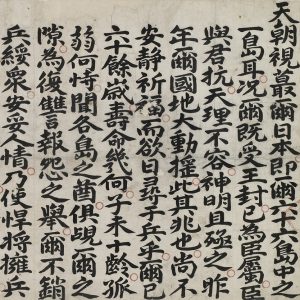 天朝視蕞爾日本即一六十六島中之
一島耳况爾既受王封已為臣屬臣
與君抗天理不容神明目殛之昨
年爾國地大動搖此其兆也尚不
安静祈福而欲日尋于兵乎爾已
六十餘歲壽命幾何子未十齡孤
弱何恃聞各島之酋俱覬爾之
隙為復讐報怨之舉爾不銷
兵綏衆安妥人情乃使悍將擁兵